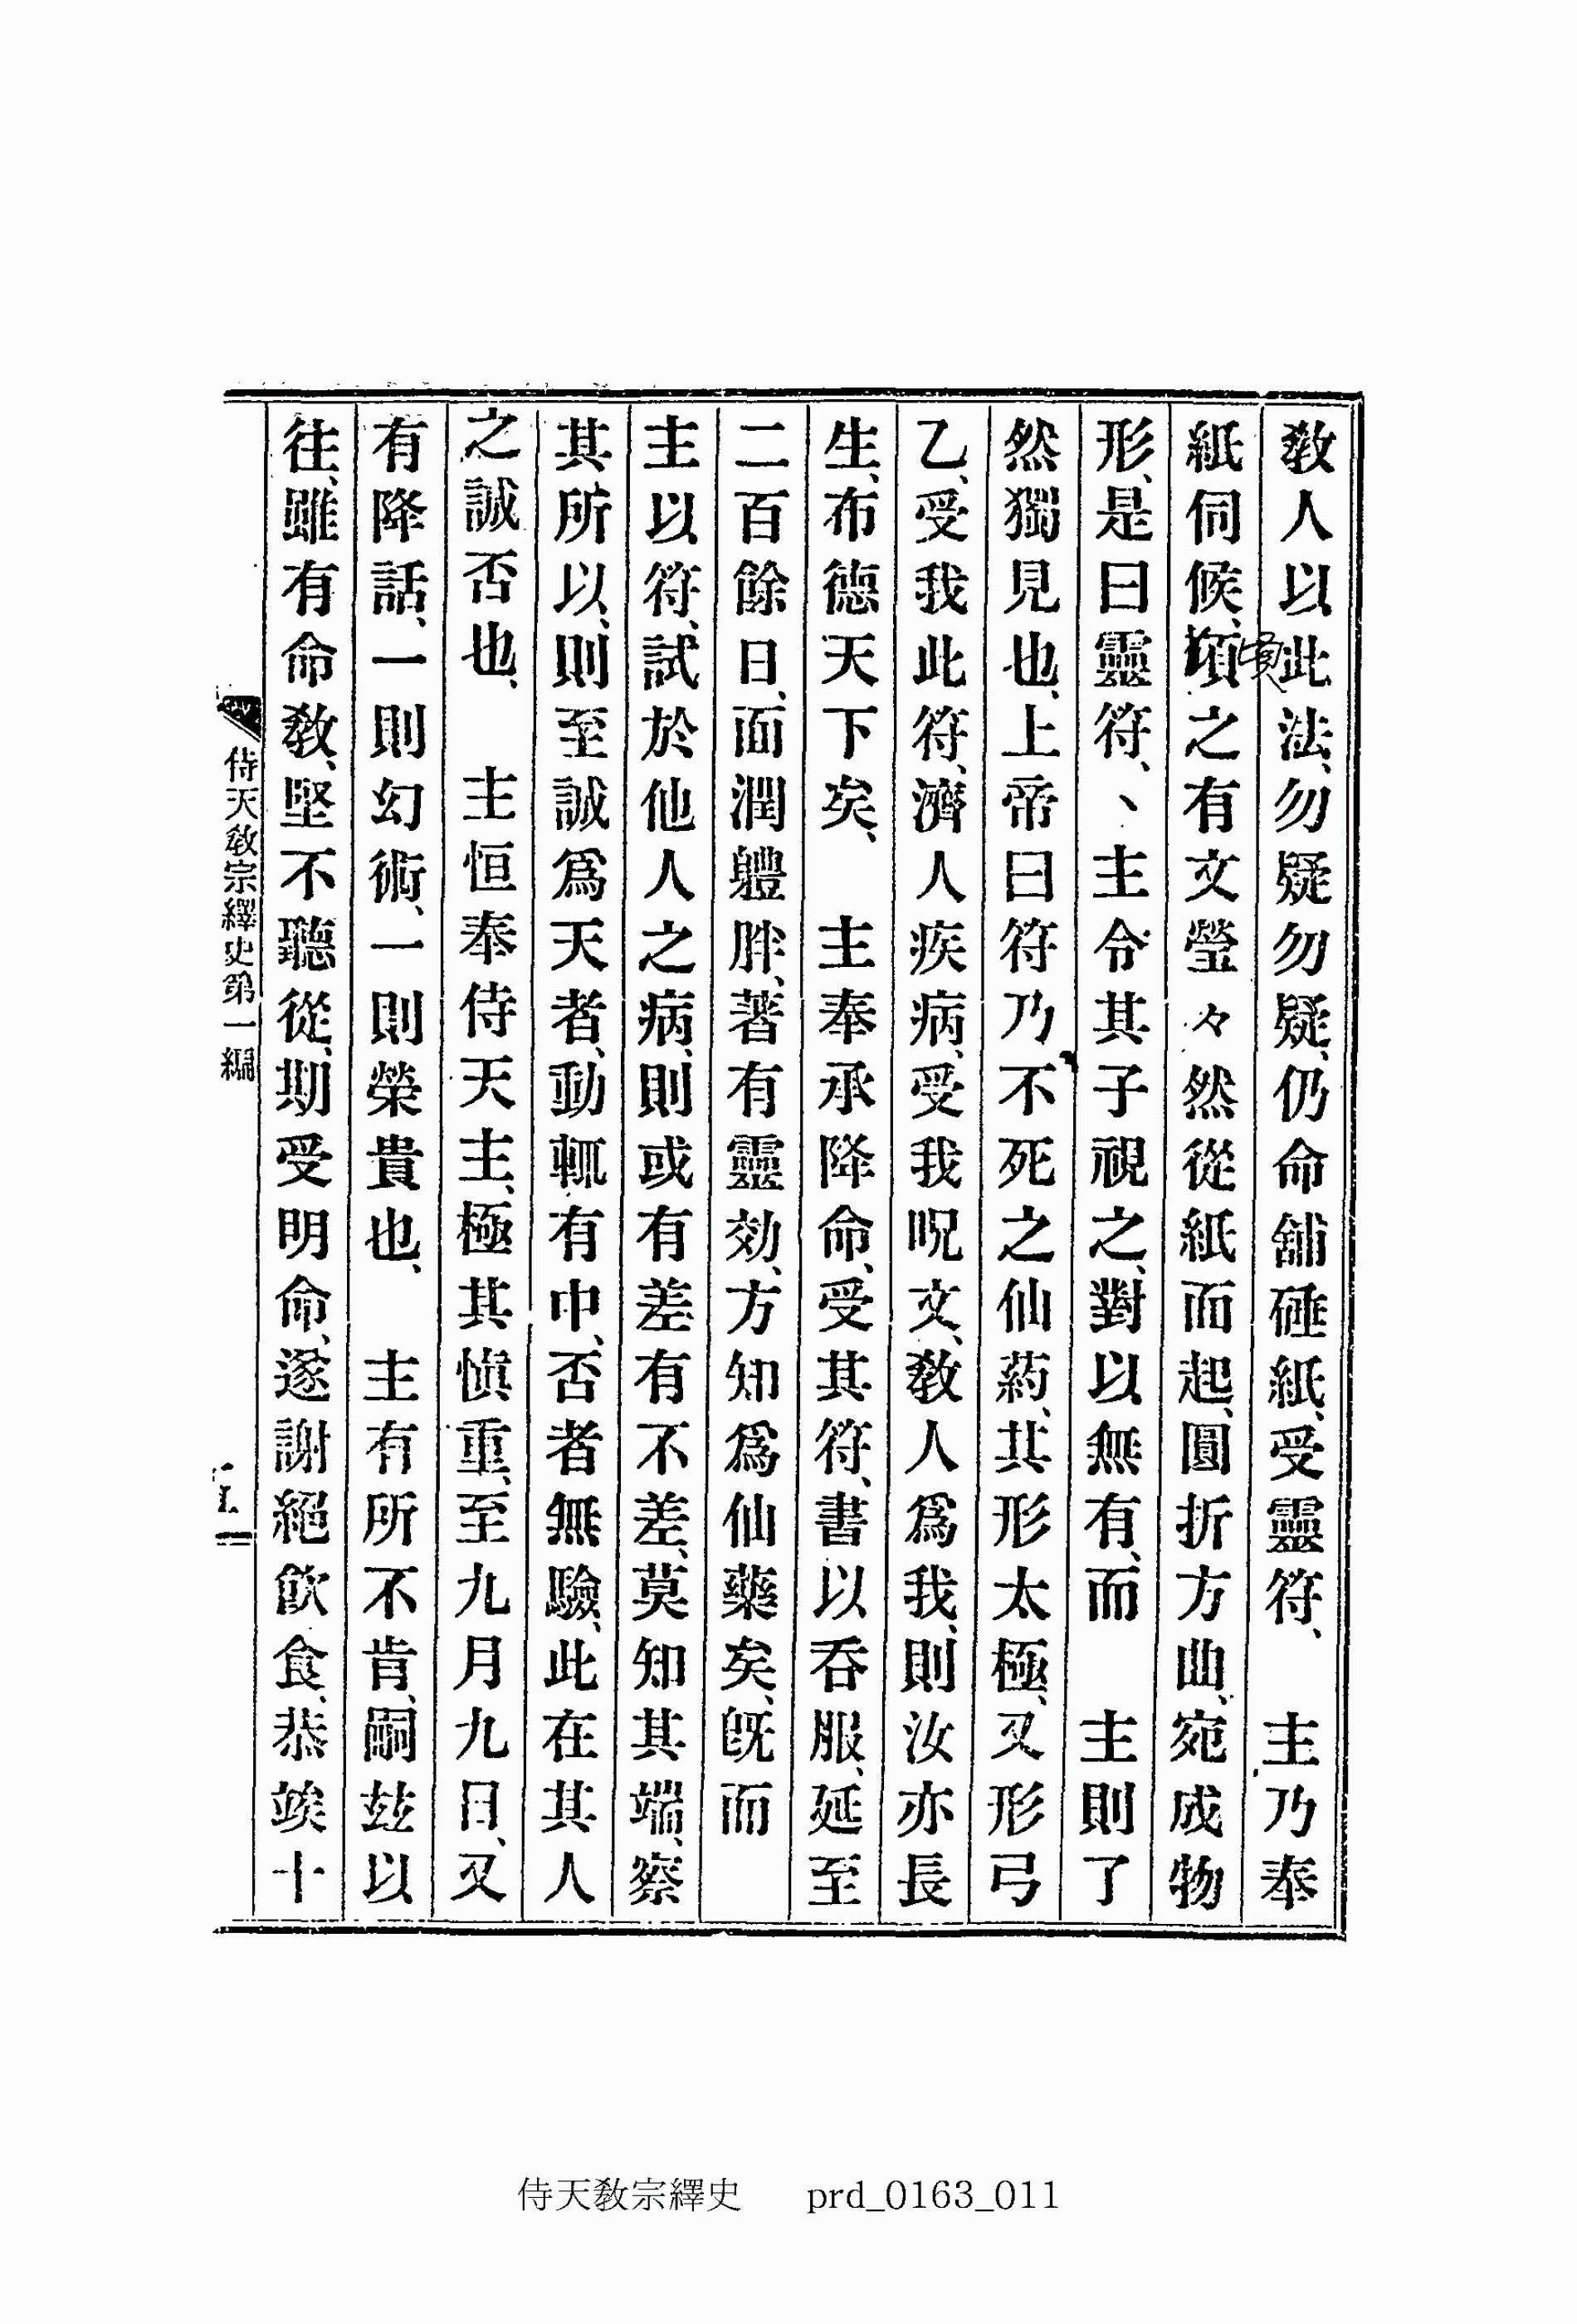 敎人以此法、勿疑勿疑、仍命舖硾紙、受靈符、　主乃奉
紙伺候、頃之有文瑩々然從紙而起、圓折方曲、宛成物
形、是曰靈符、、主令其子視之、對以無有、而　主則了
然獨見也、上帝曰符乃不死之仙葯、其形太極、又形弓
乙、受我此符、濟人疾病、受我呪文、敎人爲我、則汝亦長
生、布德天下矣、　主奉承降命、受其符、書以呑服、延至
二百餘日、面潤軆胖、著有靈効、方知爲仙藥矣、旣而
主以符、試於他人之病、則或有差有不差、莫知其端、察
其所以、則至誠爲天者、動輒有中、否者無驗、此在其人
之誠否也、　主恒奉侍天主、極其愼重、至九月九日、又
有降話、一則幻術、一則榮貴也、　主有所不肯、嗣玆以
往、雖有命敎、堅不聽從、期受明命、遂謝絕飮食、恭竢十
侍天敎宗繹史第一編
侍天敎宗繹史 prd_0163_011